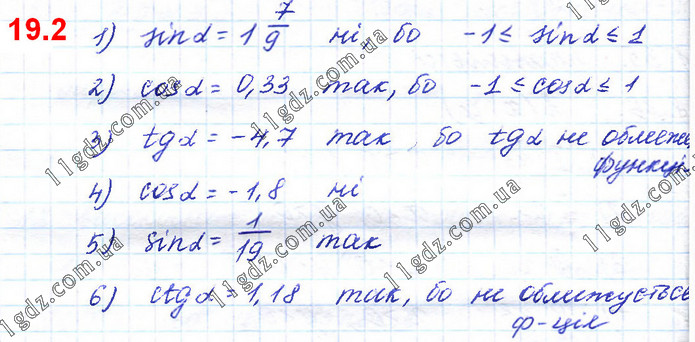 19.2
1) sinα = 1 7/9 ні, бо -1 ≤ sinα ≤ 1
2) cosα = 0,33 так, бо -1 ≤ cosα ≤ 1
3) tgα = -4,7 так, бо tgα не обмеже
функція
4) cosα = -1,8 ні
5) sinα = 1/19 так
6) ctgα = 1,18 так, бо не обмежується
ф-ція
11gdz.com.ua
11gdz.com.ua
11gdz.com.ua
11gdz.com.ua
11gdz.com.ua
11gdz.com.ua